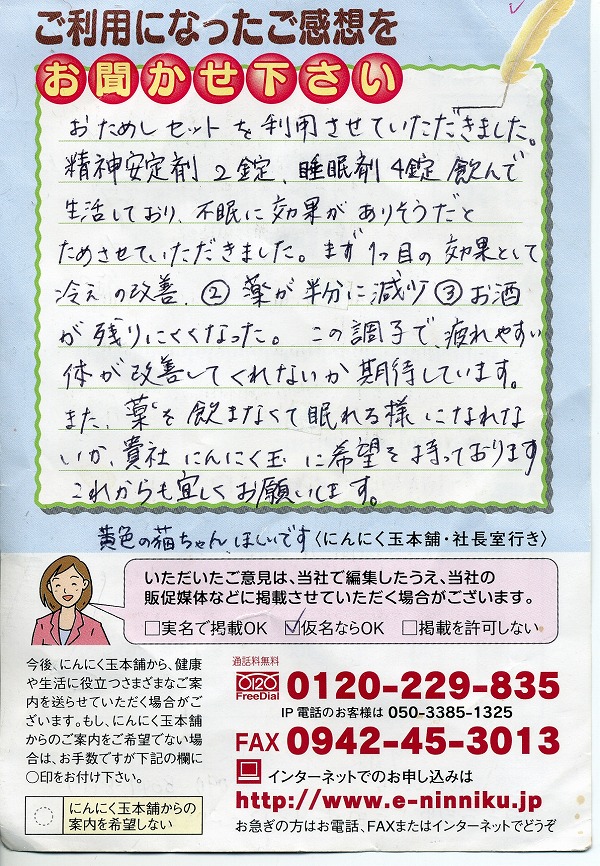 ご利用になったご感想を
お聞かせ下さい
おためしセットを利用させていただきました。
精神安定剤2錠、睡眠剤4錠飲んで
生活しており、不眠に効果がありそうだと
ためさせていただきました。まず1つ目の効果として
冷えの改善、②薬が半分に減少③お酒
が残りにくくなった。この調子で、疲れやすい
体が改善してくれないか期待しています。
また、薬を飲まなくて眠れる様になれな
いか、貴社にんにく玉に希望を持っております
これからも宜しくお願いします。
黄色の猫ちゃんほしいです〈にんにく玉本舗・社長室行き〉
いただいたご意見は、当社で編集したうえ、当社の
販促媒体などに掲載させていただく場合がございます。
□実名で掲載OK ☑仮名ならOK □掲載を許可しない
今後、にんにく玉本舗から、健康
や生活に役立つさまざまなご案
内を送らせていただく場合がご
ざいます。もし、にんにく玉本舗
からのご案内をご希望でない場
合は、お手数ですが下記の欄に
〇印をお付け下さい。
にんにく玉本舗からの
案内を希望しない
通話料無料
FreeDial 0120-229-835
IP電話のお客様は 050-3385-1325
FAX 0942-45-3013
インターネットでのお申し込みは
http://www.e-ninniku.jp
お急ぎの方はお電話、FAXまたはインターネットでどうぞ